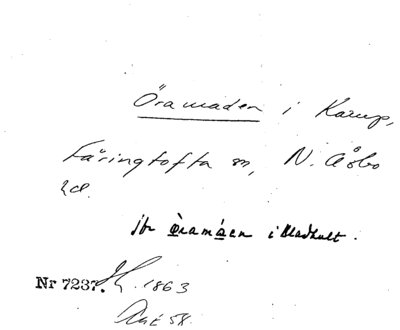 Öramaden i Karup,
Färingtofta sn, N. Åsbo
hd.
jfr i Bladhult.
Nr 7237. 1863